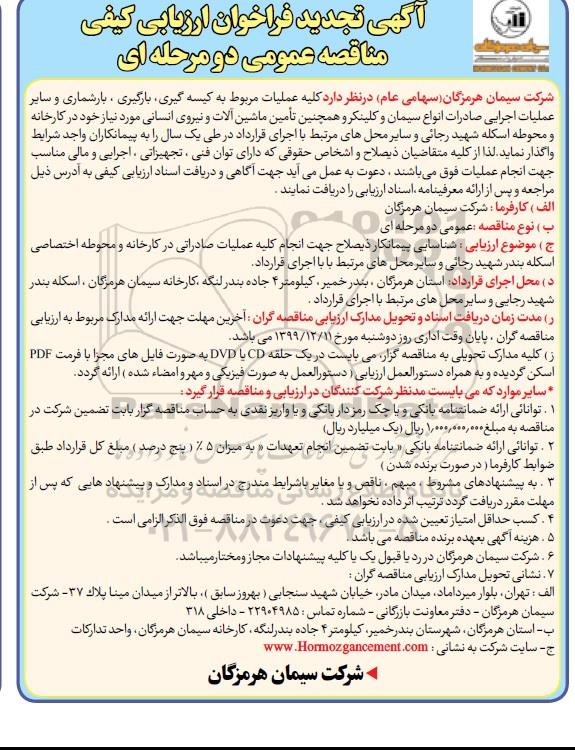 آگهی تجدید فراخوان ارزیابی کیفی
مناقصه عمومی دو مرحله ای
سیمان هرمزگان
HORMOZGAN CEMENT CO.
شرکت سیمان هرمزگان(سهامی عام) درنظر دارد کلیه عملیات مربوط به کیسه گیری، بارگیری ، بارشماری و سایر
عملیات اجرایی صادرات انواع سیمان و کلینکر و همچنین تأمین ماشین آلات و نیروی انسانی مورد نیاز خود در کارخانه
و محوطه اسکله شهید رجائی و سایر محل های مرتبط با اجرای قرارداد در طی یک سال را به پیمانکاران واجد شرایط
واگذار نماید.لذا از کلیه متقاضیان ذیصلاح و اشخاص حقوقی که دارای توان فنی ، تجهیزاتی ، اجرایی و مالی مناسب
جهت انجام عملیات فوق می‌باشند ، دعوت به عمل می آید جهت آگاهی و دریافت اسناد ارزیابی کیفی به آدرس ذیل
مراجعه و پس از ارائه معرفینامه ،اسناد ارزیابی را دریافت نمایند .
الف ) کارفرما : شرکت سیمان هرمزگان
ب ) نوع مناقصه :عمومی دو مرحله ای
ج ) موضوع ارزیابی : شناسایی پیمانکار ذیصلاح جهت انجام کلیه عملیات صادراتی در کارخانه و محوطه اختصاصی
اسکله بندر شهید رجائی و سایر محل های مرتبط با با اجرای قرارداد.
د ) محل اجرای قرارداد: استان هرمزگان ، بندر خمیر ، کیلومتر ۴ جاده بندر لنگه ،کارخانه سیمان هرمزگان ، اسکله بندر
شهید رجایی و سایر محل های مرتبط با اجرای قرارداد .
ر ) مدت زمان دریافت اسناد و تحویل مدارک ارزیابی مناقصه گران : آخرین مهلت جهت ارائه مدارک مربوط به ارزیابی
مناقصه گران ، پایان وقت اداری روز دوشنبه مورخ ۱۳۹۹/۱۲/۱۱ می باشد.
ز ) کلیه مدارک تحویلی به مناقصه گزار، می بایست در یک حلقه CD یا DVD به صورت فایل های مجزا با فرمت PDF
اسکن گردیده و به همراه دستورالعمل ارزیابی ( دستورالعمل به صورت فیزیکی و مهر و امضاء شده ) ارائه گردد.
*سایر موارد که می بایست مدنظر شرکت کنندگان در ارزیابی و مناقصه قرار گیرد :
۱ . توانائی ارائه ضمانتنامه بانکی و یا چک رمز دار بانکی و یا واریز نقدی به حساب مناقصه گزار بابت تضمین شرکت در
مناقصه به مبلغ ۱,۰۰۰,۰۰۰,۰۰۰ ریال (یک میلیارد ریال)
۲ . توانائی ارائه ضمانتنامه بانکی « بابت تضمین انجام تعهدات « به میزان ۵ ٪ ( پنج درصد ) مبلغ کل قرارداد طبق
ضوابط کارفرما ( در صورت برنده شدن )
۳ . به پیشنهادهای مشروط ، مبهم ، ناقص و یا مغایر باشرایط مندرج در اسناد و مدارک و پیشنهاد هایی که پس از
مهلت مقرر دریافت گردد ترتیب اثر داده نخواهد شد .
۴ . کسب حداقل امتیاز تعیین شده در ارزیابی کیفی ، جهت دعوت در مناقصه فوق الذکر الزامی است .
۵ . هزینه آگهی بعهده برنده مناقصه می باشد .
۶ . شرکت سیمان هرمزگان در رد یا قبول یک یا کلیه پیشنهادات مجاز ومختارمیباشد.
۷ . نشانی تحویل مدارک ارزیابی مناقصه گران :
الف : تهران ، بلوار میرداماد، میدان مادر، خیابان شهید سنجابی ( بهروز سابق )، بالاتر از میدان مینا پلاک ۳۷- شرکت
سیمان هرمزگان - دفتر معاونت بازرگانی - شماره تماس : ۲۲۹۰۴۹۸۵ - داخلی ۳۱۸
ب- استان هرمزگان، شهرستان بندرخمیر، کیلومتر ۴ جاده بندرلنگه، کارخانه سیمان هرمزگان، واحد تدارکات
ج- سایت شرکت به نشانی : www.Hormozgancement.com
شرکت سیمان هرمزگان